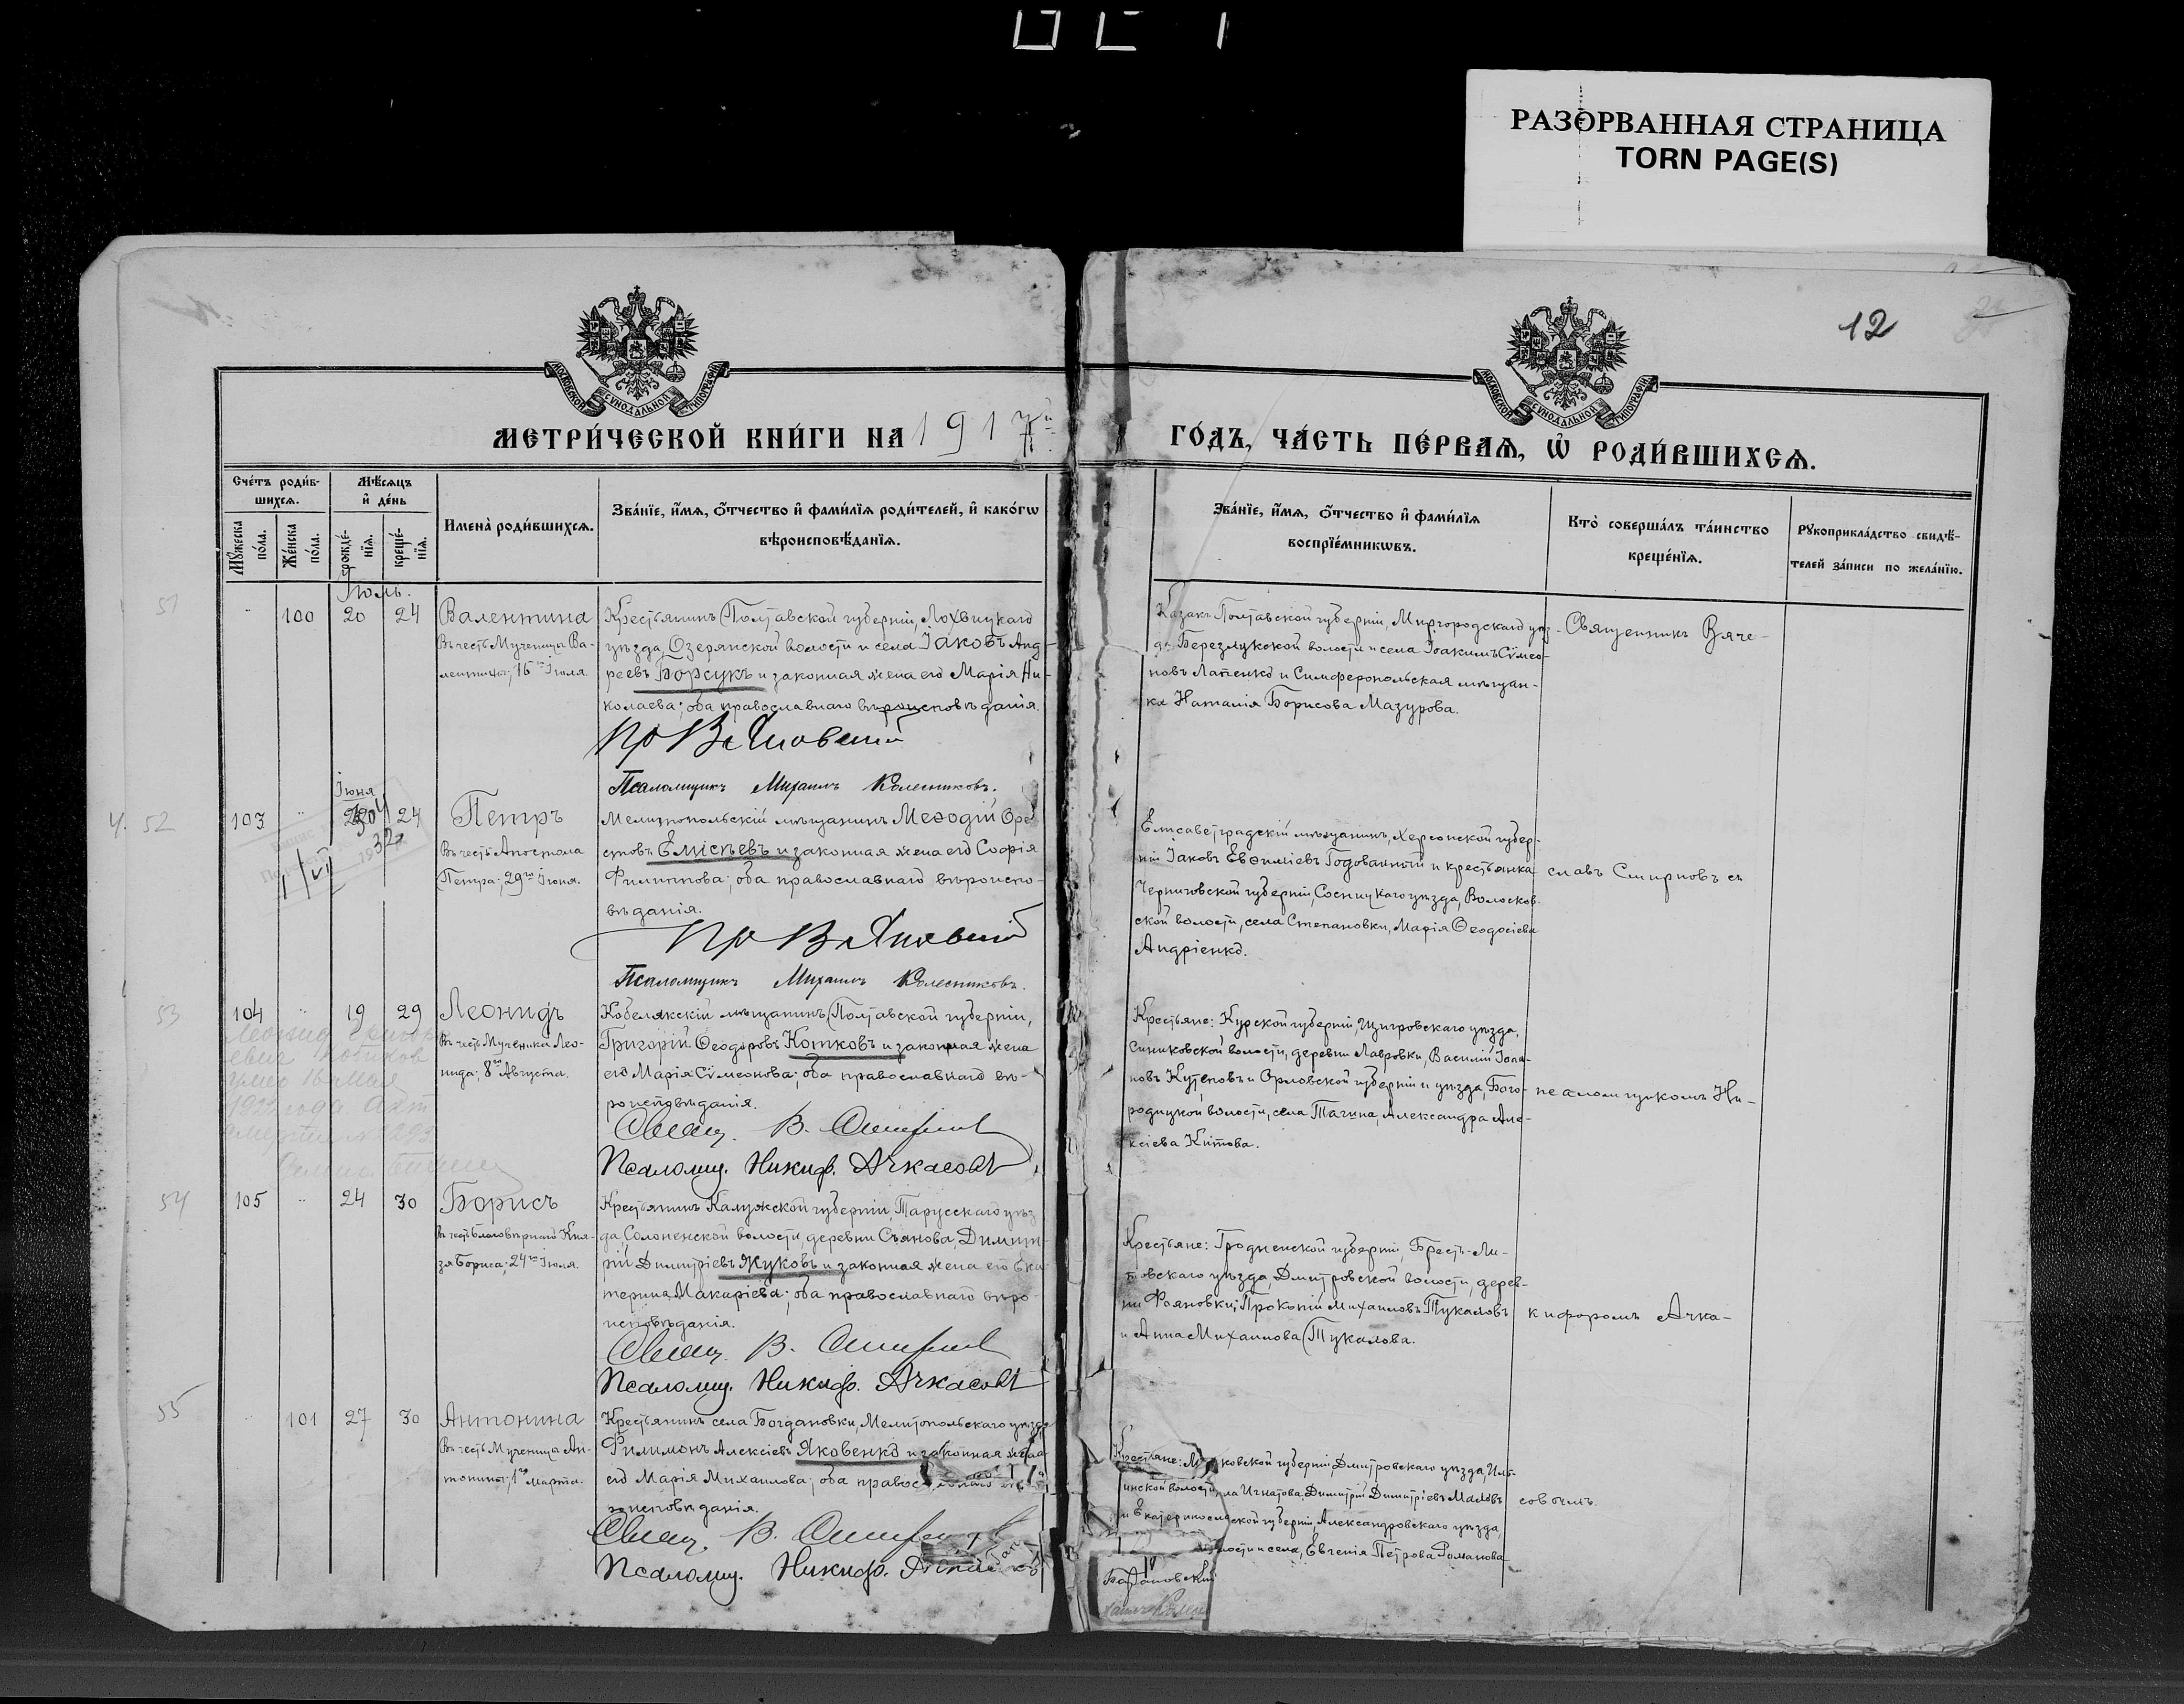 РАЗОРВАННАЯ СТРАНИЦА
TORN PAGE(S)
12
МОСКОВСКОЙ СѴНОДАЛЬНОЙ ТИПОГРАФІИ
МОСКОВСКОЙ СѴНОДАЛЬНОЙ ТИПОГРАФІИ
МЕТРИ́ЧЕСКОЙ КНИ́ГИ НА 1917й
ГО́ДЪ, ЧА́СТЬ ПЕ́РВАѦ, Ѡ҆ РОДИ́ВШИХСѦ.
Сче́тъ роди́в-
шихсѧ.
Мѣ́сѧцъ
и҆ де́нь
Мꙋ́жеска по́ла.
Же́нска по́ла.
рожде́-
нїѧ.
креще́-
нїѧ.
Имена̀ роди́вшихсѧ.
Зва́нїе, и҆́мѧ, ѻ҆́тчество и҆ фами́лїѧ роди́телей, и҆ како́гѡ
вѣроисповѣ́данїѧ.
Зва́нїе, и҆́мѧ, ѻ҆́тчество и҆ фами́лїѧ
воспрїе́мникѡвъ.
Кто̀ соверша́лъ та́инство
креще́нїѧ.
Рꙋкоприкла́дство свидѣ́-
телей за́писи по жела́нїю.
Іюль.
51
100 20 24 Валентина
Въ честь Мученицы Ва-
лентины; 16го Іюля.
Крестьянинъ Полтавской губерніи, Лохвицкаго
уѣзда, Озерянской волости и села Іаковъ Анд-
реевъ Борсукъ и законная жена его Марія Ни-
колаева; оба православнаго вѣроисповѣданія.
Пр В Яновскій
Псаломщикъ Михаилъ Колесниковъ.
Казакъ Полтавской губерніи, Миргородскаго уѣз-
да Березлукской волости и села Іоакимъ Сѵмео-
новъ Лапенко и Симферопольская мѣщан-
ка Наталія Борисова Мазурова.
Священникъ Вяче-
52
Іюня
103 24 Петръ
Въ честь Апостола
Петра; 29го Іюня.
Мелитопольскій мѣщанинъ Меѳодій Оре
стовъ Елисѣевъ и законная жена его Софія
Филиппова; оба православнаго вѣроиспо-
вѣданія.
Пр В Яновскій
Псаломщикъ Михаилъ Колесниковъ.
Елисаветградскій мѣщанинъ, Херсонской губер-
ніи Іаковъ Евѳиміевъ Годованный и крестьянка
Черниговской губерніи, Сосницкаго уѣзда, Волосков-
ской волости, села Степановки, Марія Ѳеодосіева
Андріенко.
славъ Смирновъ съ
53
104 19 29 Леонидъ
Въ честь Мученика Лео-
нида; 8го Августа.
Кобелякскій мѣщанинъ Полтавской губерніи,
Григорій Ѳеодоровъ Котковъ и законная жена
его Марія Сѵмеонова; оба православнаго вѣ-
роисповѣданія.
Свящ. В. Смирновъ
Псаломщ. Никиф. Ачкасовъ
Крестьяне: Курской губерніи, Щигровскаго уѣзда,
волости, деревни Лавровки, Василій
новъ Кутеповъ и Орловской губерніи и уѣзда, Бого-
родицкой волости, села Тагина, Александра Але-
ксіева Китова.
псаломщикомъ Ни-
54
105 24 30 Борисъ
Въ честь Благовѣрнаго Кня-
зя Бориса; 24го Іюля.
Крестьянинъ Калужской губерніи, Тарусскаго уѣз
да, Солопенской волости, деревни Съянова, Димит-
рій Димитріевъ Жуковъ и законная жена его Ека
терина Макаріева; оба православнаго вѣро-
исповѣданія.
Свящ. В. Смирновъ
Псаломщ. Никиф. Ачкасовъ
Крестьяне: Гродненской губерніи, Брестъ-Ли-
товскаго уѣзда, Дмитровской волости, дерев-
ни Фояновки; Прокопій Михаиловъ Тукаловъ
и Анна Михаилова Тукалова.
кифоромъ Ачка-
55
101 27 30 Антонина
Въ честь Мученицы Ан-
тонины; 1го марта.
Крестьянинъ села Богдановки, Мелитопольскаго уѣзда
Филимонъ Алексіевъ Яковенко и законная жена
его Марія Михаилова; оба
роисповѣданія.
Свящ. В.
Псаломщ. Никиф.
Крестьяне: М ковской губерніи, Дмитровскаго уѣзда,
инской волости, ла Игнатова, Димитрій Димитріевъ Маловъ
и Екатеринославской губерніи, Александровскаго уѣзда,
лости и села, Евгенія Петрова Романова
совымъ.